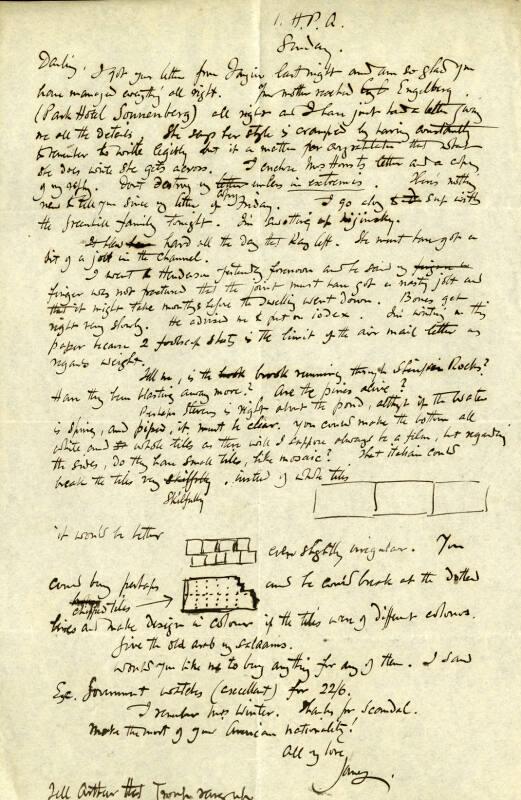 1. H.P.A.
Sunday.
Darling, I got your letter from Tangier last night and am so glad you
have managed everything all right. Your mother reached Engelberg
(Park Hotel Sonnenberg) all right and I have just had a letter giving
me all the details. She says her style is cramped by having constantly
to remember to write legibly but it is a matter for congratulation that what
she does write she gets across. I enclose Mrs letter and a copy
of my reply. Don't destroy my letter unless in extremis. There's nothing
new to tell you since my letter of Friday. I go along to sup with
the Greenhill family tonight. I'm up Nijinsky.
It blew hard all the day that Kay left. She must have got a
bit of a jolt in the Channel.
I went to Henderson yesterday forenoon and he said my
finger was not fractured that the joint must have got a nasty jolt and
that it might take months before the swelling went down. Bones get
right very slowly. He advised me to put on iodex. I'm writing on this
paper because 2 foolscap sheets is the limit of the air mail letter as
regards weight.
Tell me, is the brook running through Rocks?
Have they been blasting away more? Are the pines alive?
Perhaps Stevens is right about the pond, altho' if the water
is spring, and piped, it must be clear. You could make the bottom all
white and whole tiles as there will I suppose always be a film, but regarding
the sides, do they have small tiles, like mosaic? That Italian could
break the tiles very skilfully, instead of whole tiles
Skilfully
it would be better
even slightly irregular. You
could buy perhaps and he could break at the dotted
chipped tiles
lines and make design in colour if the tiles were of different colours.
Give the old arab my salaams.
Would you like me to buy anything for any of them. I saw
Ex. Government watches (excellent) for 22/6.
I remember Mrs Winter. Thanks for scandal.
Make the most of your American nationality!
All my love
James.
Tell Arthur that